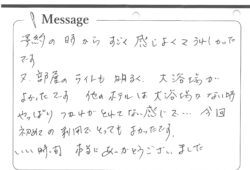 Message
予約の時から すごく 感じよくて うれしかった
です
又、部屋のライトも 明るく、大浴場が
よかったです 他のホテルは 大浴場がない時
やっぱり つかれが とれてない感じで… 今回
初めての利用で とっても よかったです。
いい時間 本当に ありがとうございました